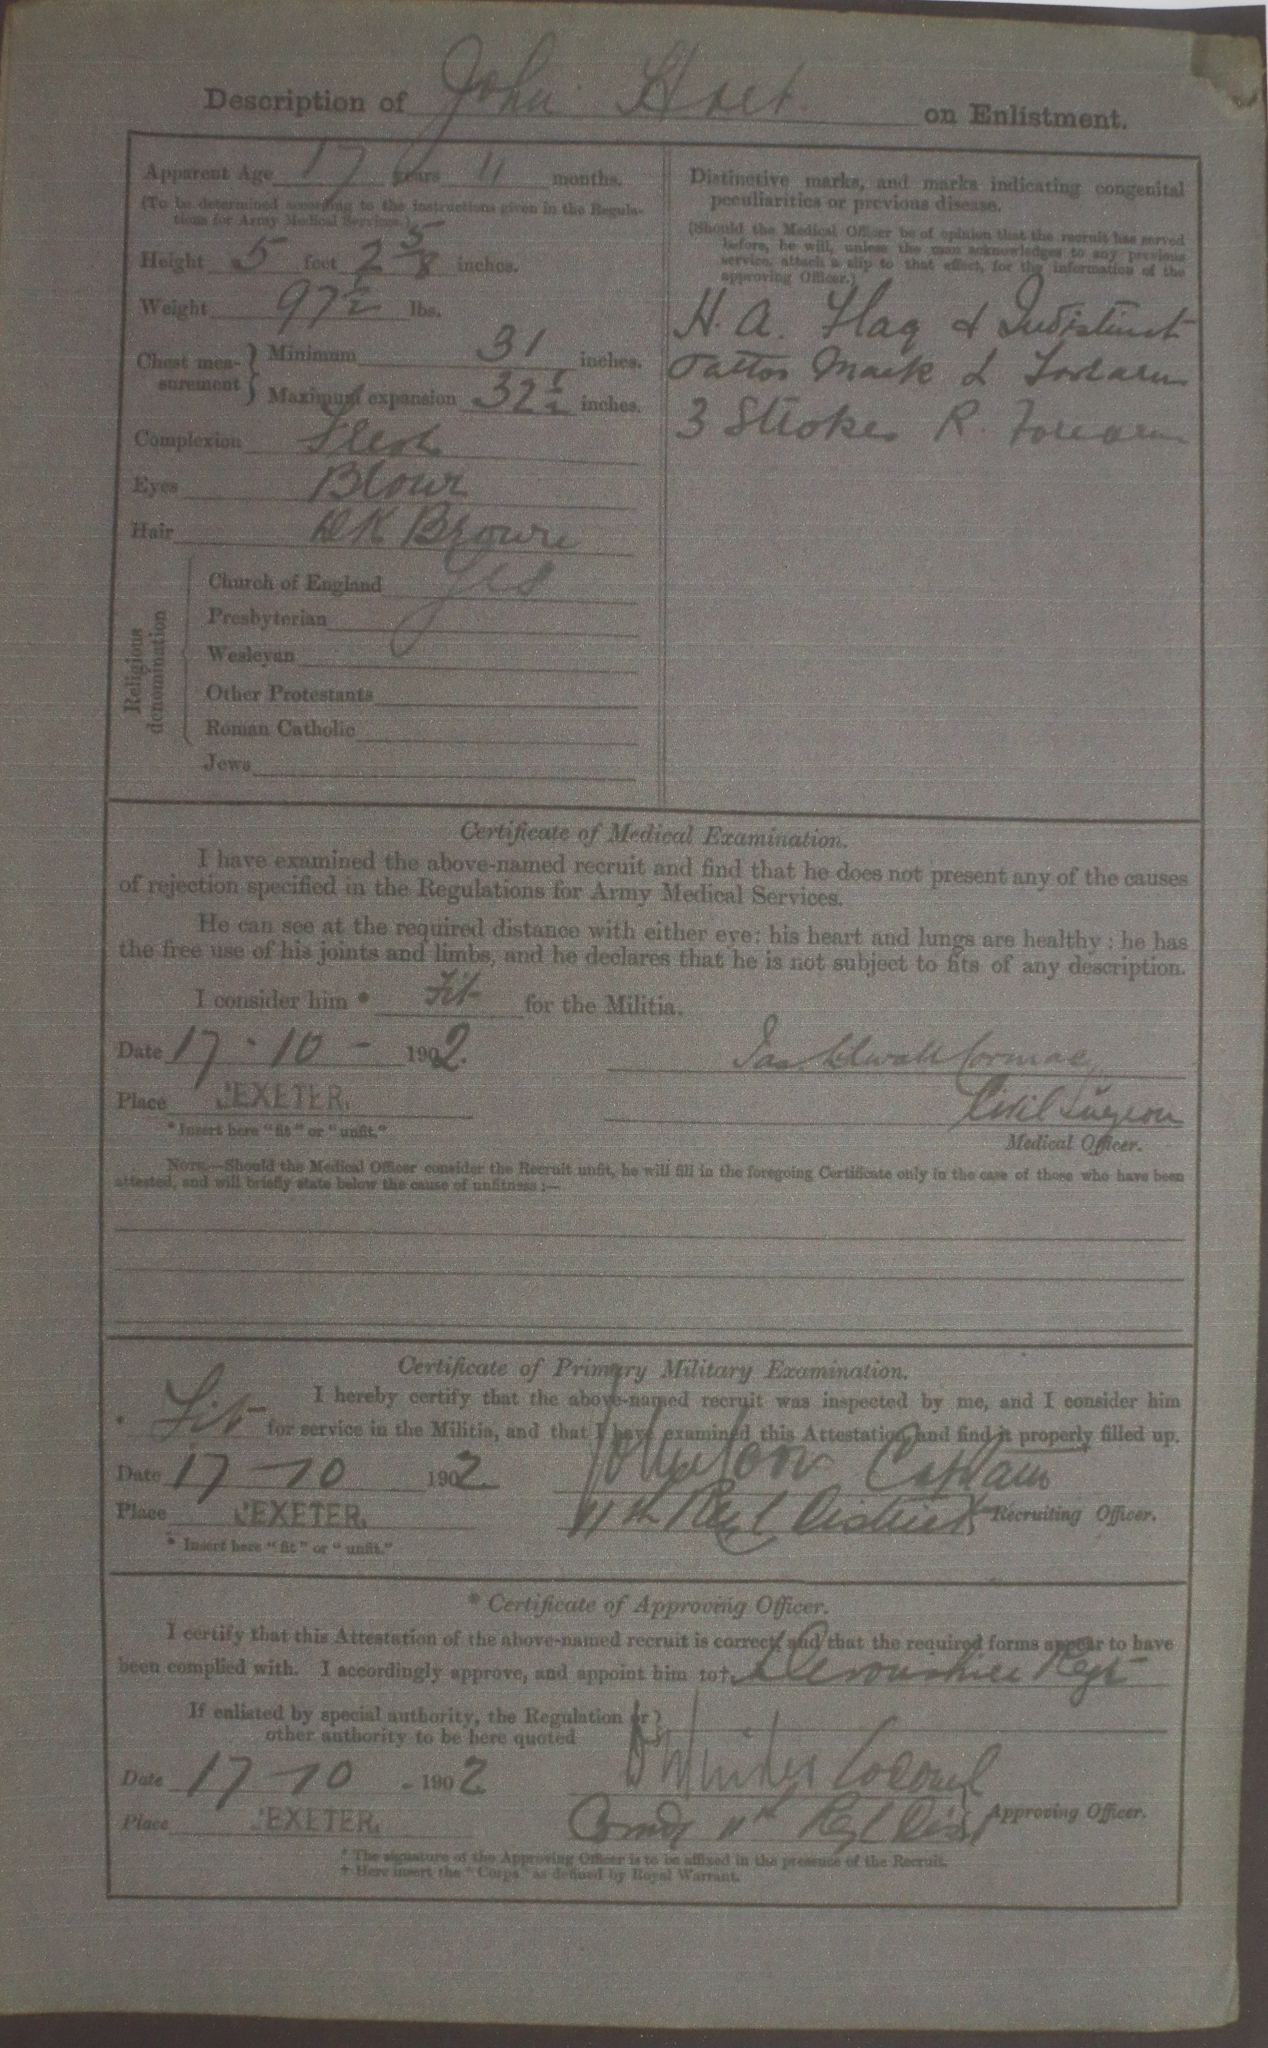 Description of John Hart on Enlistment.
Apparent Age 17 years 11 months.
(To be determined according to the instructions given in the Regula-
tions for Army Medical Services.)
Height 5 feet 2 5/8 inches.
Weight 97 1/2 lbs.
Chest mea-
surement
Minimum 31 inches.
Maximum expansion 32 1/2 inches.
Complexion Fresh
Eyes Brown
Hair DK Brown
Religious
denomination
Church of England Yes
Presbyterian
Wesleyan
Other Protestants
Roman Catholic
Jews
Distinctive marks, and marks indicating congenital
peculiarities or previous disease.
(Should the Medical Officer be of opinion that the recruit has served
before, he will, unless the man acknowledges to any previous
service, attach a slip to that effect, for the information of the
approving Officer.)
H. A. Flag & Indistinct
Tattoo Mark L Forearm
3 Strokes R. Forearm
Certificate of Medical Examination.
I have examined the above-named recruit and find that he does not present any of the causes
of rejection specified in the Regulations for Army Medical Services.
He can see at the required distance with either eye; his heart and lungs are healthy; he has
the free use of his joints and limbs, and he declares that he is not subject to fits of any description.
I consider him * Fit for the Militia.
Date 17 - 10 - 1902.
Place EXETER.
Civil Surgeon
Medical Officer.
* Insert here "fit" or "unfit."
NOTE.—Should the Medical Officer consider the Recruit unfit, he will fill in the foregoing Certificate only in the case of those who have been
attested, and will briefly state below the cause of unfitness:—
Certificate of Primary Military Examination.
I hereby certify that the above-named recruit was inspected by me, and I consider him
* Fit for service in the Militia, and that I have examined this Attestation, and find it properly filled up.
Date 17 - 10 1902
Captain
Place EXETER.
11th Regl District Recruiting Officer.
* Insert here "fit" or "unfit."
* Certificate of Approving Officer.
I certify that this Attestation of the above-named recruit is correct, and that the required forms appear to have
been complied with. I accordingly approve, and appoint him to† Devonshire Regt
If enlisted by special authority, the Regulation or
other authority to be here quoted
Date 17 - 10 - 1902
Colonel
Place EXETER.
Comdg 11th Regl Dist Approving Officer.
* The signature of the Approving Officer is to be affixed in the presence of the Recruit.
† Here insert the "Corps" as defined by Royal Warrant.